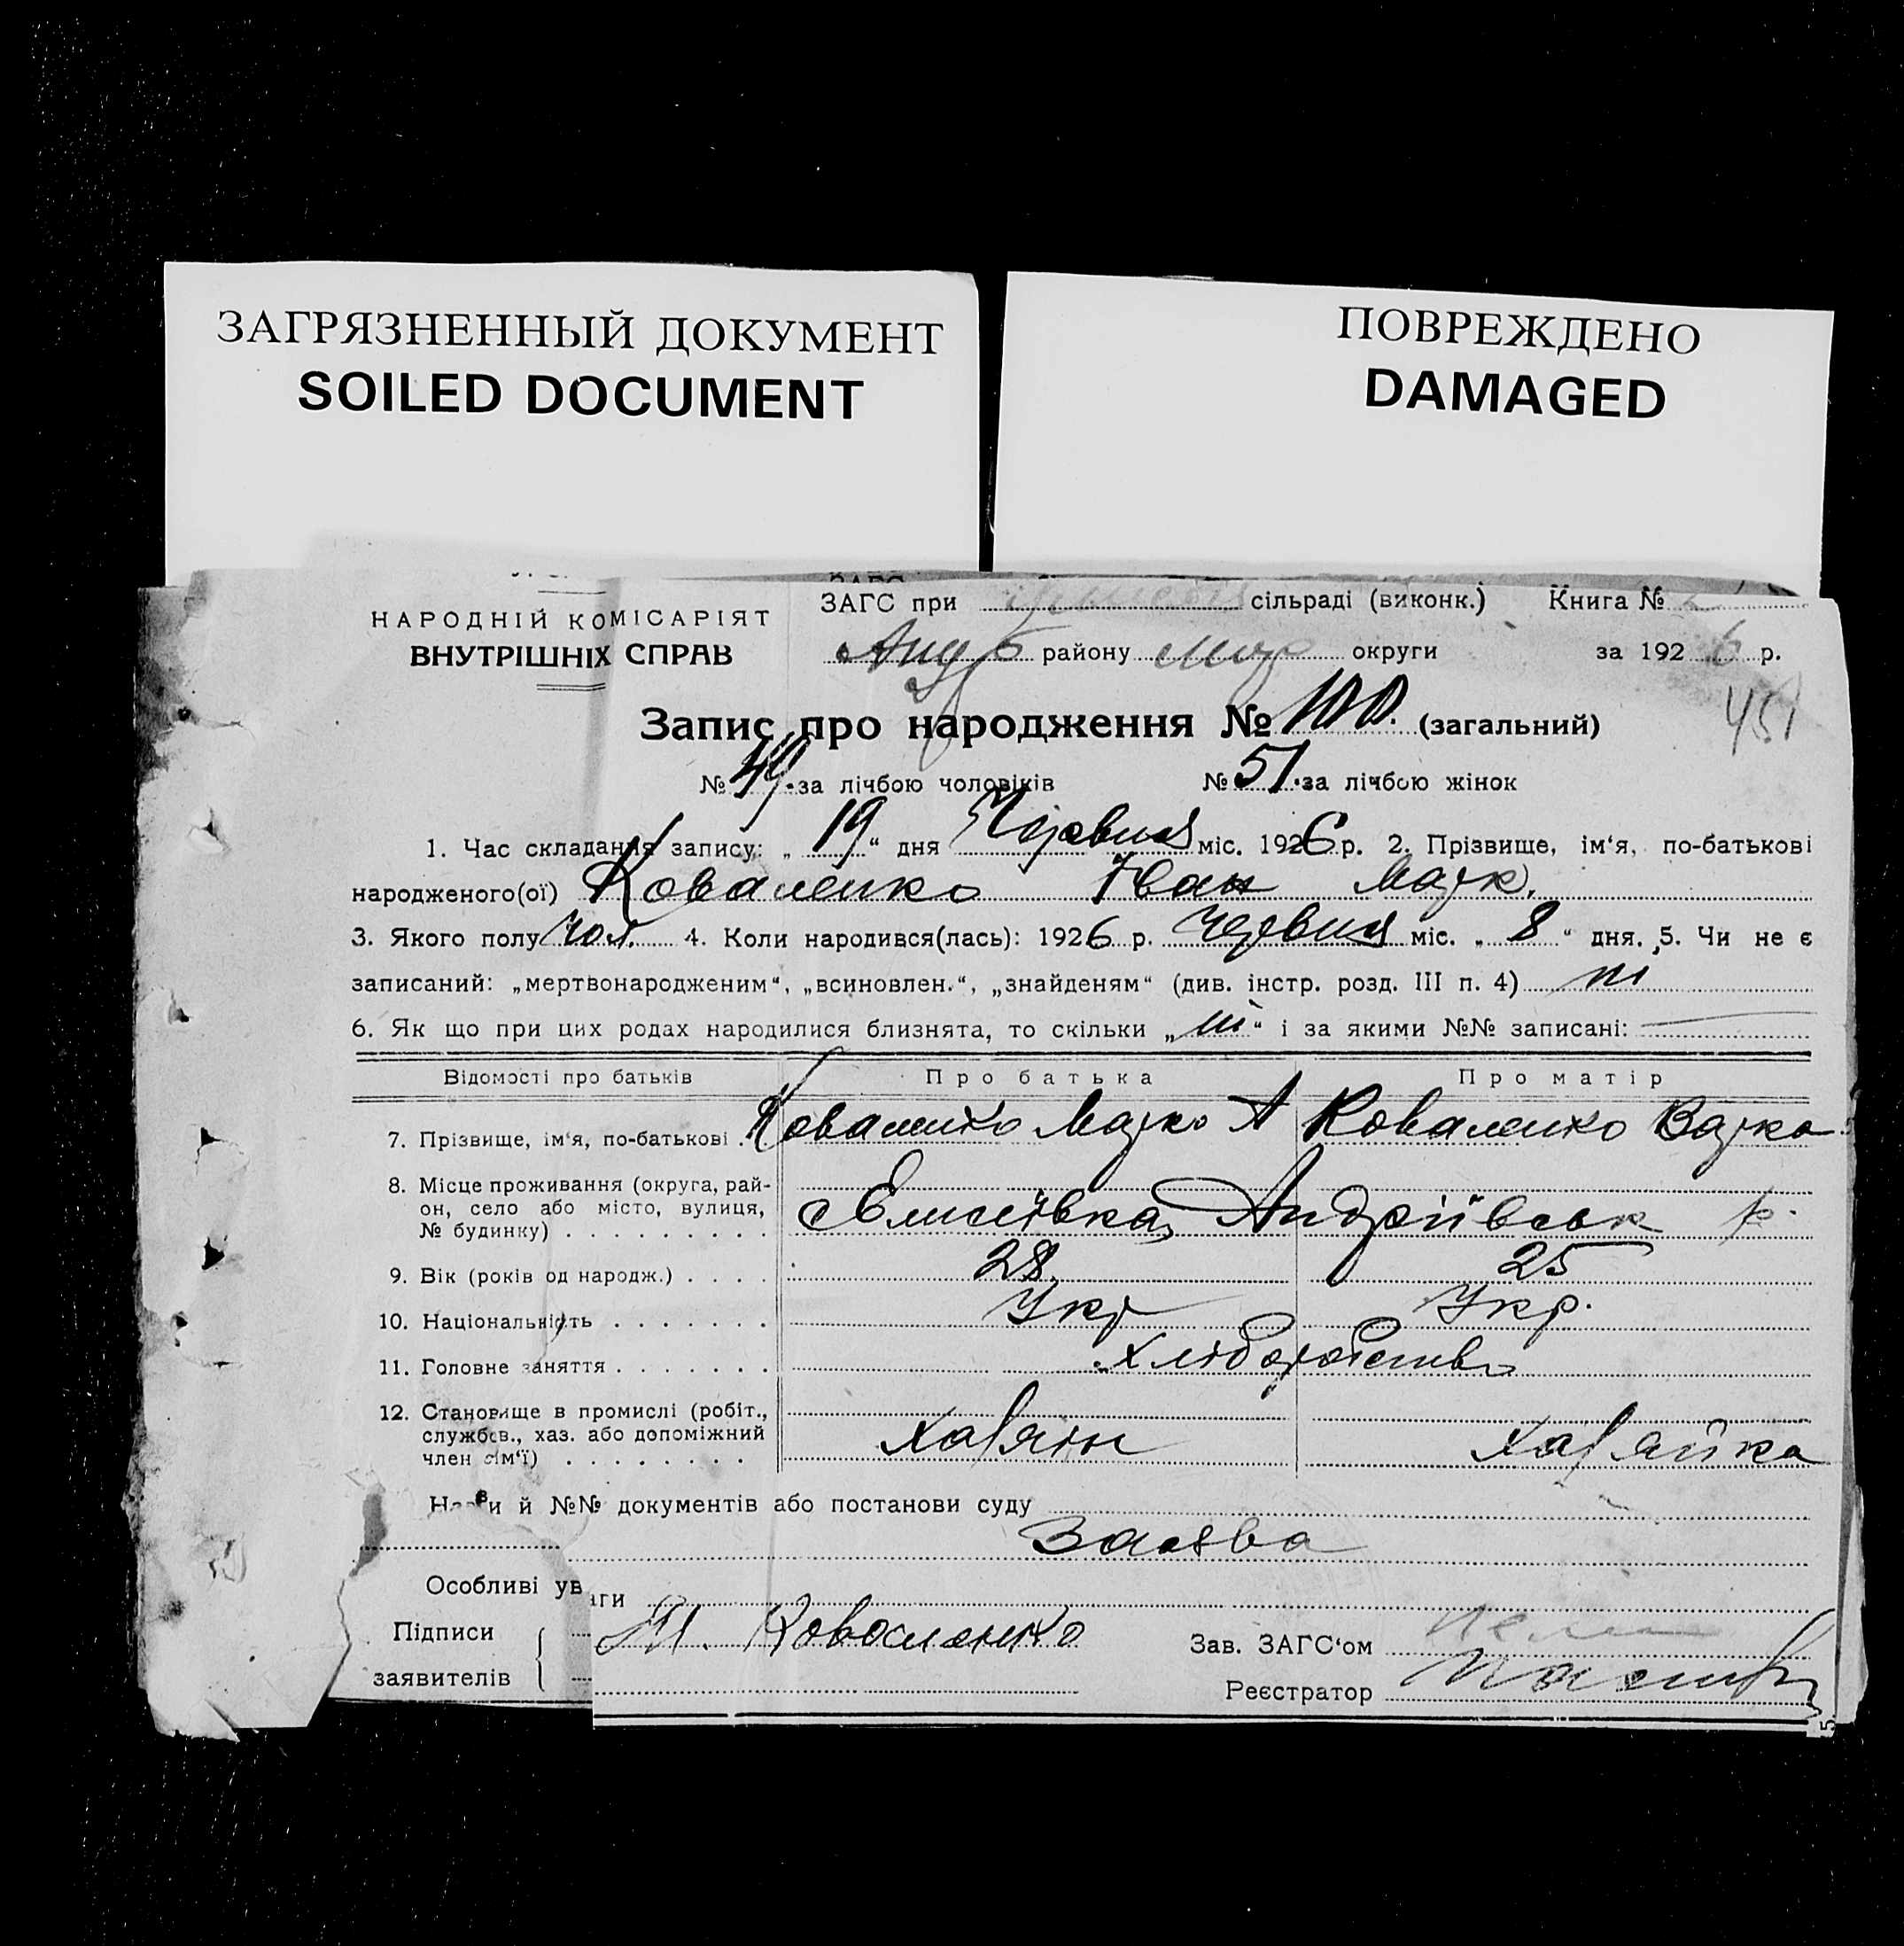 ЗАГРЯЗНЕННЫЙ ДОКУМЕНТ
SOILED DOCUMENT
ПОВРЕЖДЕНО
DAMAGED
НАРОДНІЙ КОМІСАРІЯТ
ВНУТРІШНІХ СПРАВ
ЗАГС при сільраді (виконк.) Книга №
району округи за 1926 р.
Запис про народження № 100. (загальний)
451
№ 49. за лічбою чоловіків № 51. за лічбою жінок
1. Час складання запису: „ 19 “ дня Червня міс. 1926 р. 2. Прізвище, ім‘я, по-батькові
народженого(ої) Коваленко Іван Марк.
3. Якого полу чол. 4. Коли народився(лась): 1926 р. Червня міс. „ 8 “ дня. 5. Чи не є
записаний: „мертвонародженим“, „всиновлен.“, „знайденям“ (див. інстр. розд. III п. 4) ні
6. Як що при цих родах народилися близнята, то скільки „ ні “ і за якими №№ записані:
Відомості про батьків Про батька Про матір
7. Прізвище, ім‘я, по-батькові . Коваленко Марко А Коваленко Варка
8. Місце проживання (округа, рай-
он, село або місто, вулиця,
№ будинку) . . . . . . . . . Єлисеївка, Андріївськ р.
9. Вік (років од народж.) . . . . 28 25
10. Національність . . . . . . . Укр Укр.
11. Головне заняття . . . . . . . Хліборобство
12. Становище в промислі (робіт.,
службов., хаз. або допоміжний
член сім‘ї) . . . . . . . . Хазяїн Хазяйка
Назви й №№ документів або постанови суду
Заява
Особливі уваги
Підписи
заявителів
М. Коваленко
Зав. ЗАГС‘ом
Реєстратор